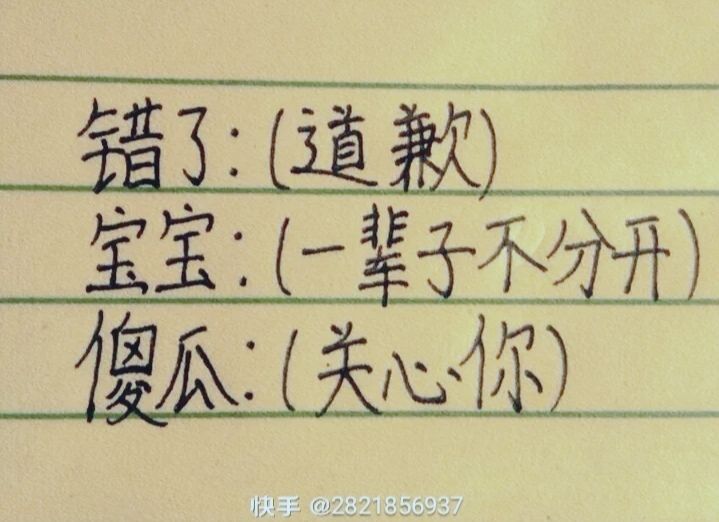 错了:(道歉)
宝宝:(一辈子不分开)
傻瓜:(关心你)
快手 @2821856937